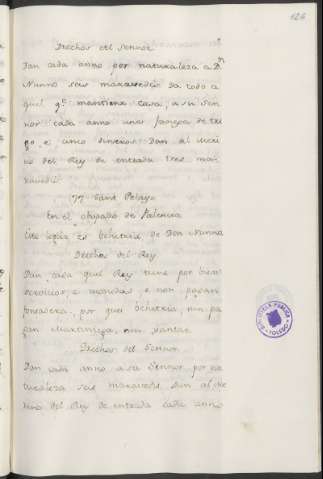 124
Derechos del Sennor
Dan cada anno por naturaleza a Dn
Nunno seis maravedis da todo a
quel qe mantiene casa, a su Sen
nor cada anno una fanega de tri
go e cinco dineros. Dan al
no del Rey de entrada tres ma
ravedis
77 Sant Pelayo
En el obispado de Palencia
Este logar es behetria de Don Nunno
Derechos del Rey
Dan cada quel Rey tiene por bien
servicios, e monedas e non pagan
fonsadera, por que behetria, nin pa
gan Martiniega, nin yantar
Derechos del Sennor
Dan cada anno a su Sennor, por na
turaleza seis maravedis, Dan al
del Rey de entrada cada anno
BIBLIOTECA PUBLICA
TOLEDO